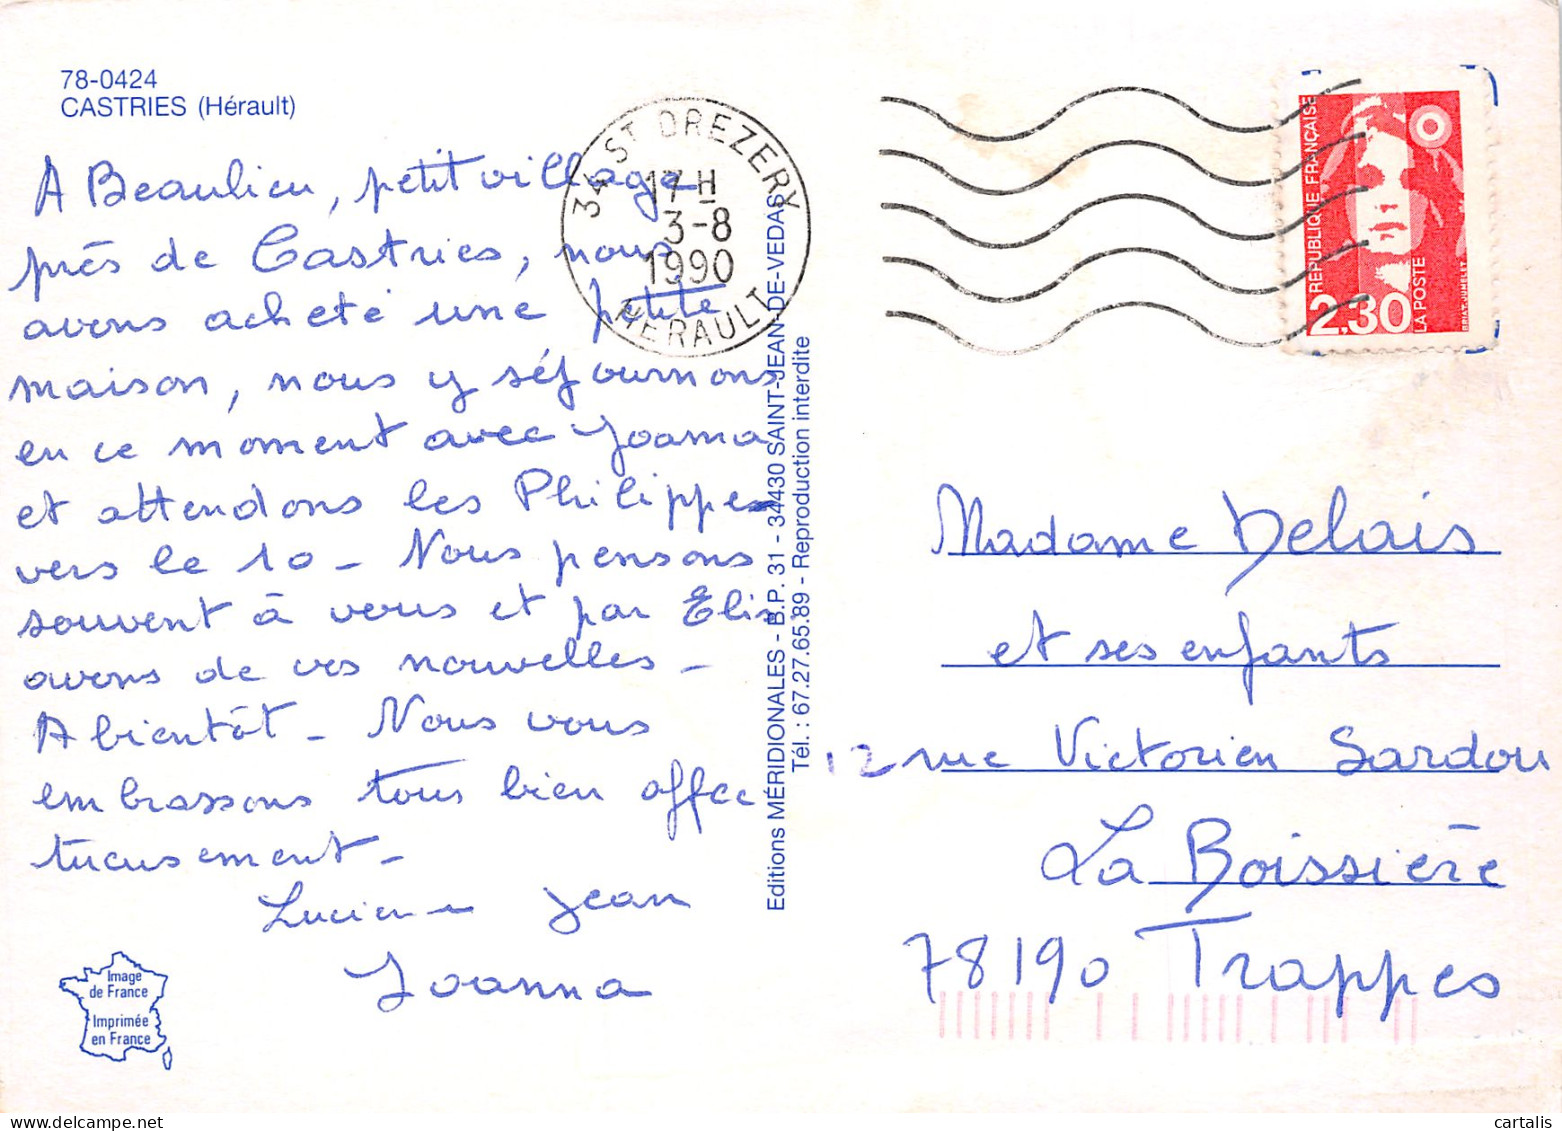 78-0424
CASTRIES (Hérault)
A Beaulieu, petit village
près de Castries, nous
avons acheté une petite
maison, nous y séjournons
en ce moment avec Joanna
et attendons les Philippes
vers le 10 - Nous pensons
souvent à vous et par Elis
avons de vos nouvelles -
A bientôt - Nous vous
embrassons tous bien affec
tueusement -
Lucienne Jean
Joanna
Image
de France
Imprimée
en France
Editions MÉRIDIONALES - B.P. 31 - 34430 SAINT-JEAN-DE-VEDAS
Tél. : 67.27.65.89 - Reproduction interdite
34 ST DREZERY
17 H
3-8
1990
HERAULT
REPUBLIQUE FRANÇAISE
2,30
LA POSTE
Madame Delais
et ses enfants
12 rue Victorien Sardou
La Boissière
78190 Trappes
cartalis